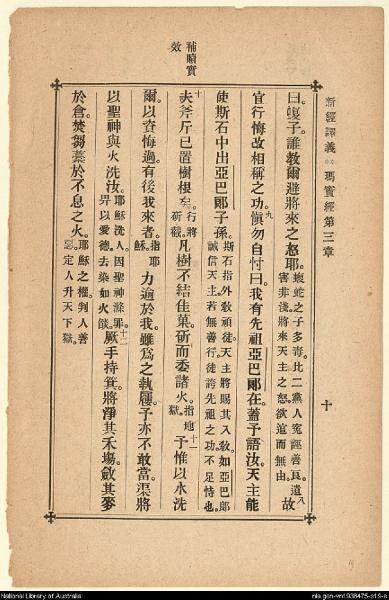 新經譯義 瑪竇經第三章 十
曰。蝮子。誰教爾避將來之怒耶。蝮蛇之子多毒。比二黨人冤誣善良。遺害非淺。將來天主之怒。欲逭而無由。八故
宜行悔改相稱之功。九愼勿自忖曰。我有先祖亞巴郎在。蓋予語汝。天主能
使斯石中出亞巴郎子孫。斯石指外敎頑徒。天主將賜其入敎。如亞巴郎誠信天主。若無善行。徒誇先祖之功。不足恃也。
十夫斧斤已置樹根矣。行將斫截。凡樹不結佳菓。斫而委諸火。指地獄。十一予惟以水洗
爾。以咨悔過。有後我來者。指耶穌。力逾於我。雖爲之執屨。予亦不敢當。渠將
以聖神與火洗汝。耶穌洗人。因聖神滌罪。畀以愛德去染如火燄。十二厥手持箕。將淨其禾塲。斂其麥
於倉。焚芻藁於不息之火。耶穌之權。判人善惡。定人升天下獄。
補贖實效
National Library of Australia
nla.gen-vn1938475-s19-e